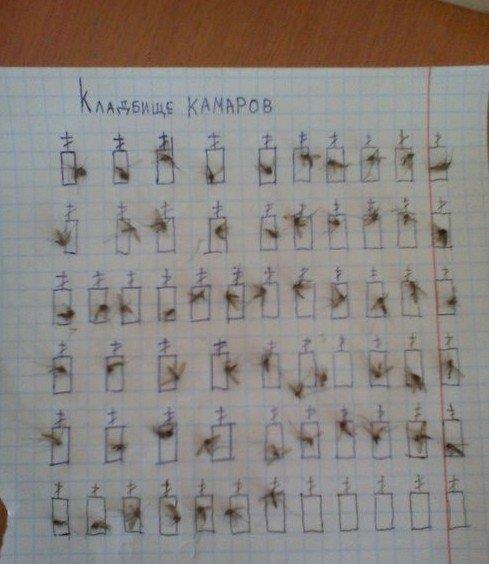 Кладбище КАМАРОВ